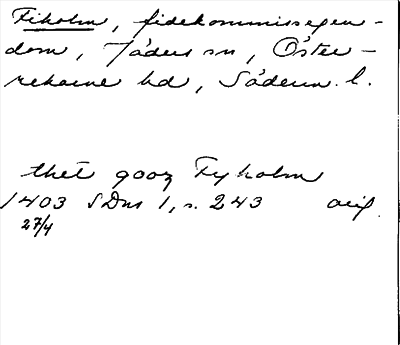 Fiholm, fideikommissegen-
dom, Jäders sn, Öster-
rekarne hd, Söderm. l.
thet gooz Fyholm
1403 SDns 1, s. 243 orig.
27/4